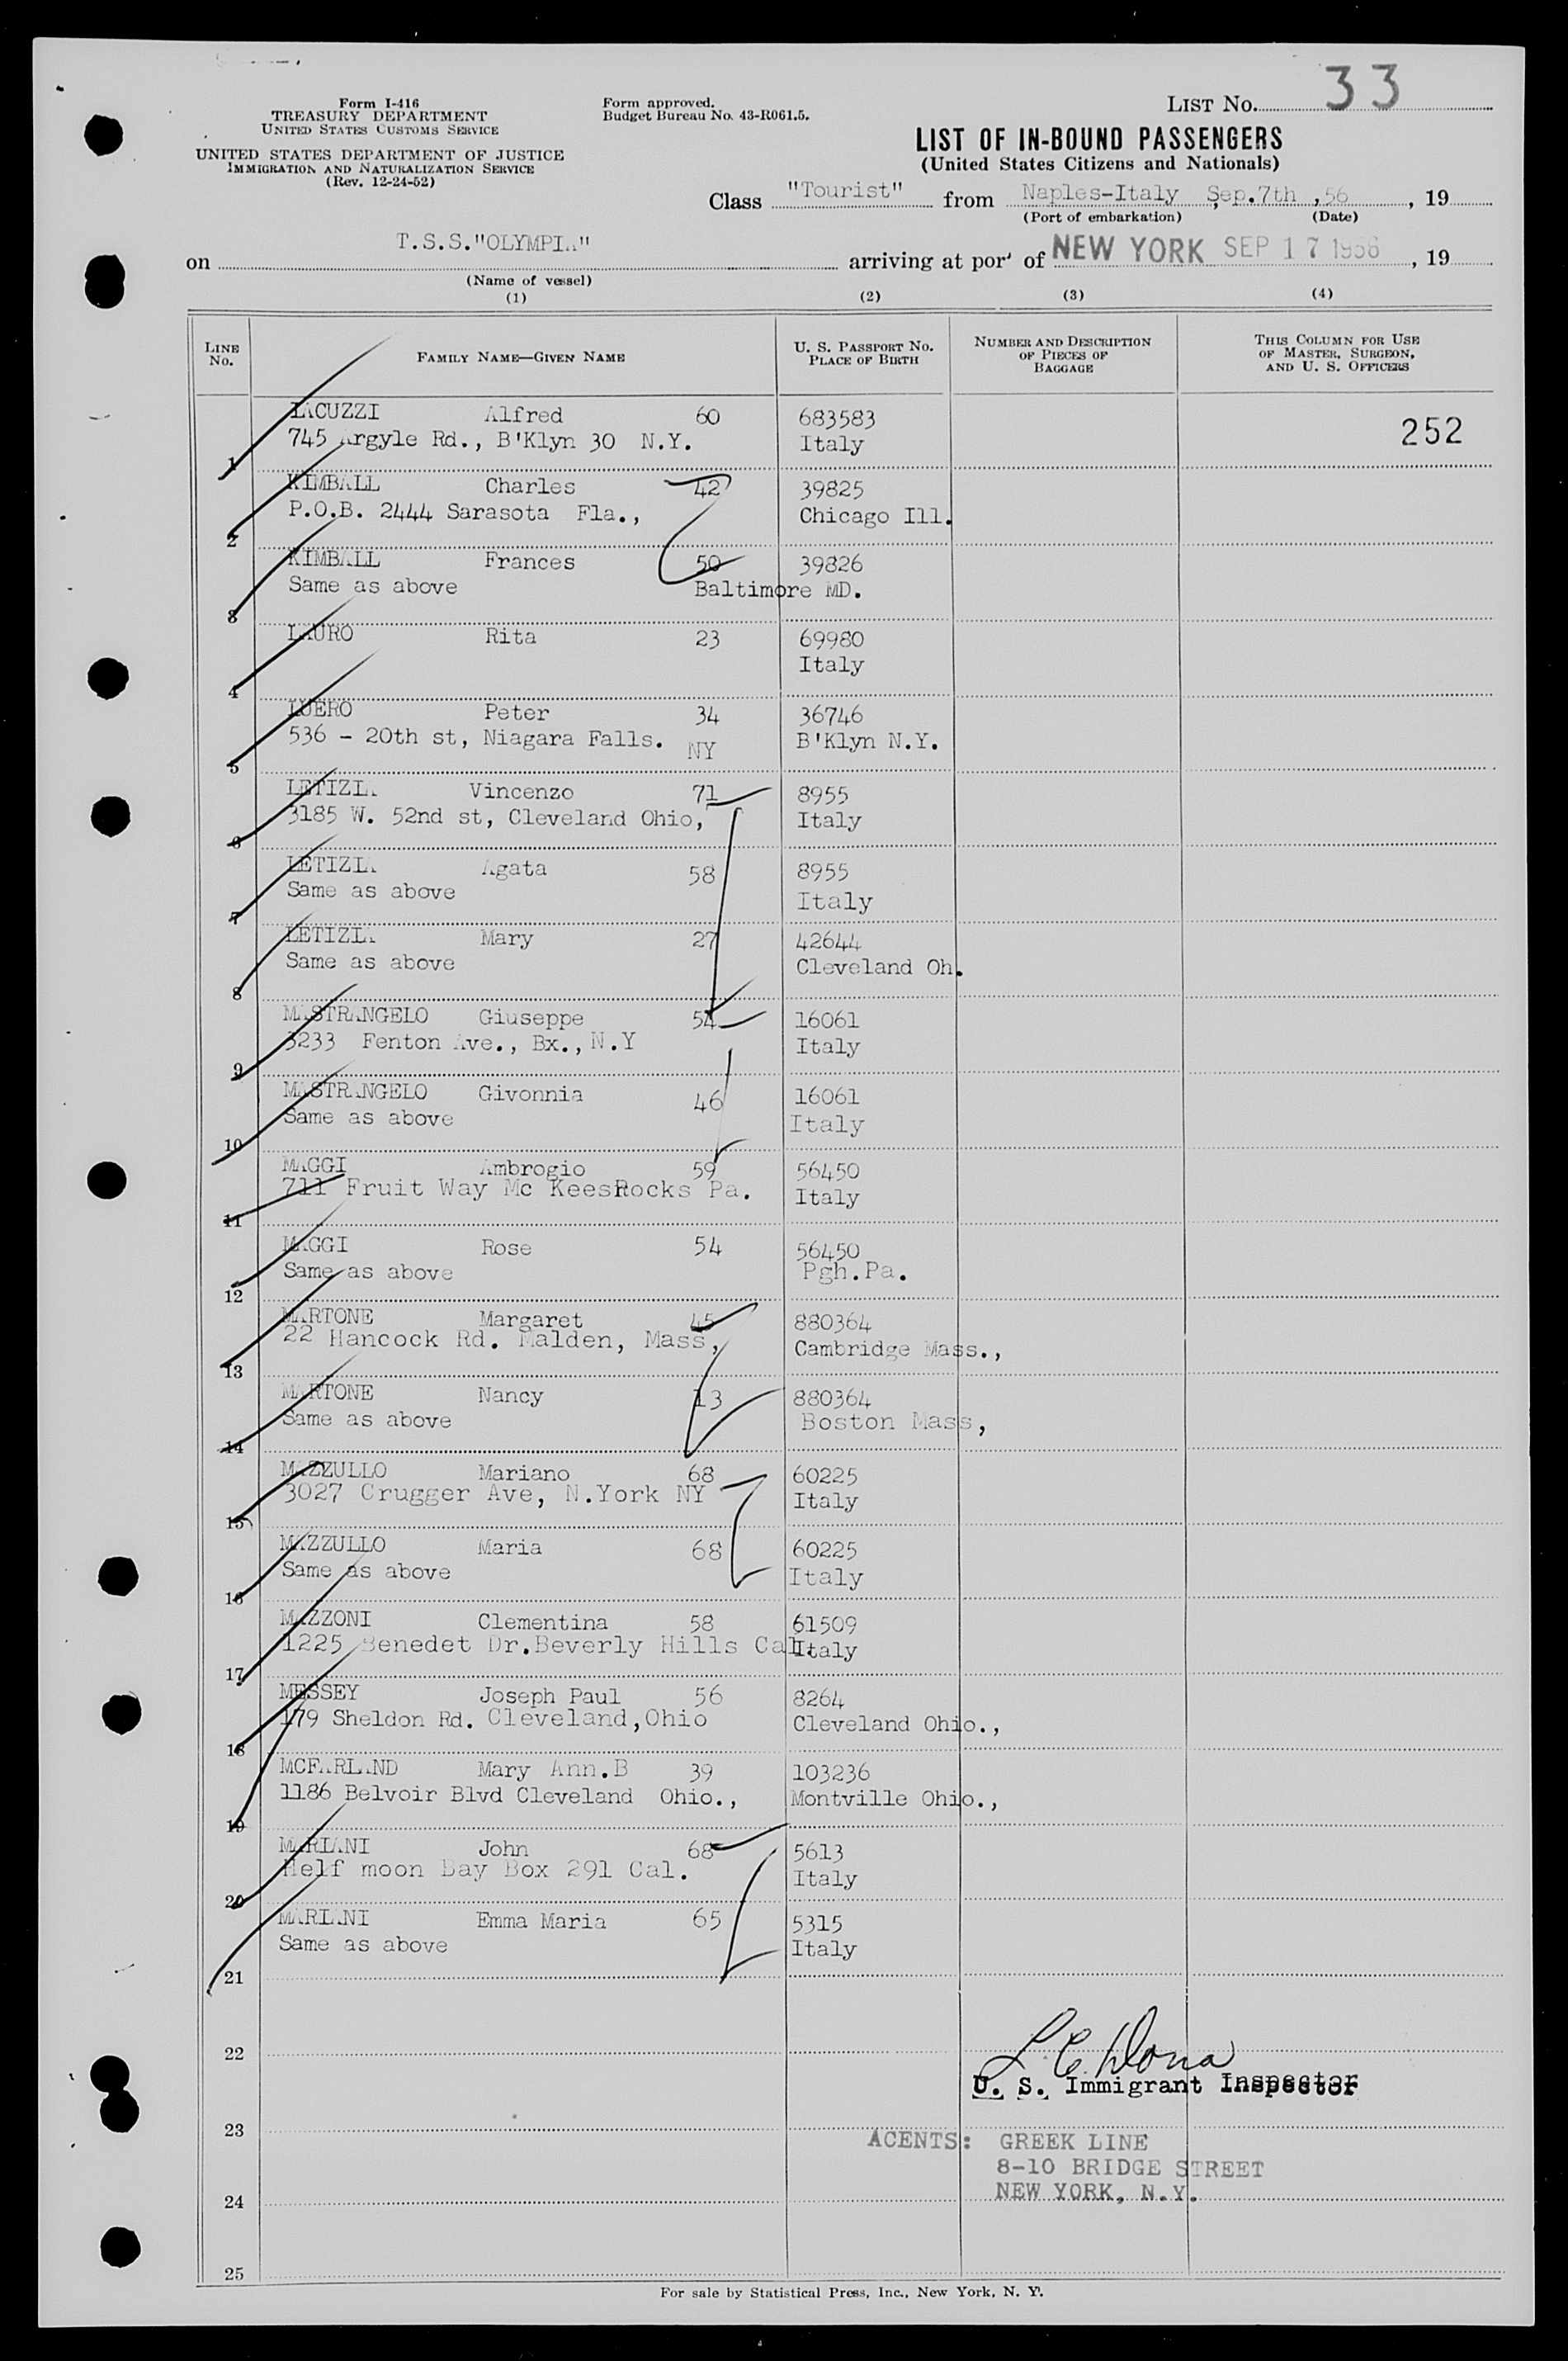 LIST No. 33
Form I-416
TREASURY DEPARTMENT
UNITED STATES CUSTOMS SERVICE
UNITED STATES DEPARTMENT OF JUSTICE
IMMIGRATION AND NATURALIZATION SERVICE
(Rev. 12-24-52)
Form approved.
Budget Bureau No. 43-R061.5.
LIST OF IN-BOUND PASSENGERS
(United States Citizens and Nationals)
Class "Tourist" from Naples-Italy , Sep.7th ,56 , 19
(Port of embarkation) (Date)
on T.S.S."OLYMPIA" arriving at port of NEW YORK SEP 17 1956 , 19
(Name of vessel)
(1) (2) (3) (4)
LINE No. FAMILY NAME—GIVEN NAME U. S. PASSPORT No. PLACE OF BIRTH NUMBER AND DESCRIPTION OF PIECES OF BAGGAGE THIS COLUMN FOR USE OF MASTER, SURGEON, AND U. S. OFFICERS
IACUZZI Alfred 60 683583
745 Argyle Rd., B'Klyn 30 N.Y. Italy 252
1
KIMBALL Charles 42 39825
P.O.B. 2444 Sarasota Fla., Chicago Ill.
2
KIMBALL Frances 50 39826
Same as above Baltimore MD.
3
LAURO Rita 23 69980
Italy
4
LUERO Peter 34 36746
536 - 20th st, Niagara Falls. NY B'Klyn N.Y.
5
LETIZIA Vincenzo 71 8955
3185 W. 52nd st, Cleveland Ohio, Italy
6
LETIZIA Agata 58 8955
Same as above Italy
7
LETIZIA Mary 27 42644
Same as above Cleveland Oh.
8
MASTRANGELO Giuseppe 54 16061
3233 Fenton Ave., Bx., N.Y Italy
9
MASTRANGELO Givonnia 46 16061
Same as above Italy
10
MAGGI Ambrogio 59 56450
711 Fruit Way Mc KeesRocks Pa. Italy
11
MAGGI Rose 54 56450
Same as above Pgh.Pa.
12
MARTONE Margaret 45 880364
22 Hancock Rd. Malden, Mass, Cambridge Mass.,
13
MARTONE Nancy 13 880364
Same as above Boston Mass,
14
MAZZULLO Mariano 68 60225
3027 Crugger Ave, N.York NY Italy
15
MAZZULLO Maria 68 60225
Same as above Italy
16
MAZZONI Clementina 58 61509
1225 Benedet Dr.Beverly Hills Cal. Italy
17
MESSEY Joseph Paul 56 8264
179 Sheldon Rd. Cleveland,Ohio Cleveland Ohio.,
18
MCFARLAND Mary Ann.B 39 103236
1186 Belvoir Blvd Cleveland Ohio., Montville Ohio.,
19
MARIANI John 68 5613
Helf moon Bay Box 291 Cal. Italy
20
MARIANI Emma Maria 65 5315
Same as above Italy
21
22
U. S. Immigrant Inspector
23
AGENTS: GREEK LINE
8-10 BRIDGE STREET
24 NEW YORK, N.Y.
25
For sale by Statistical Press, Inc., New York, N. Y.